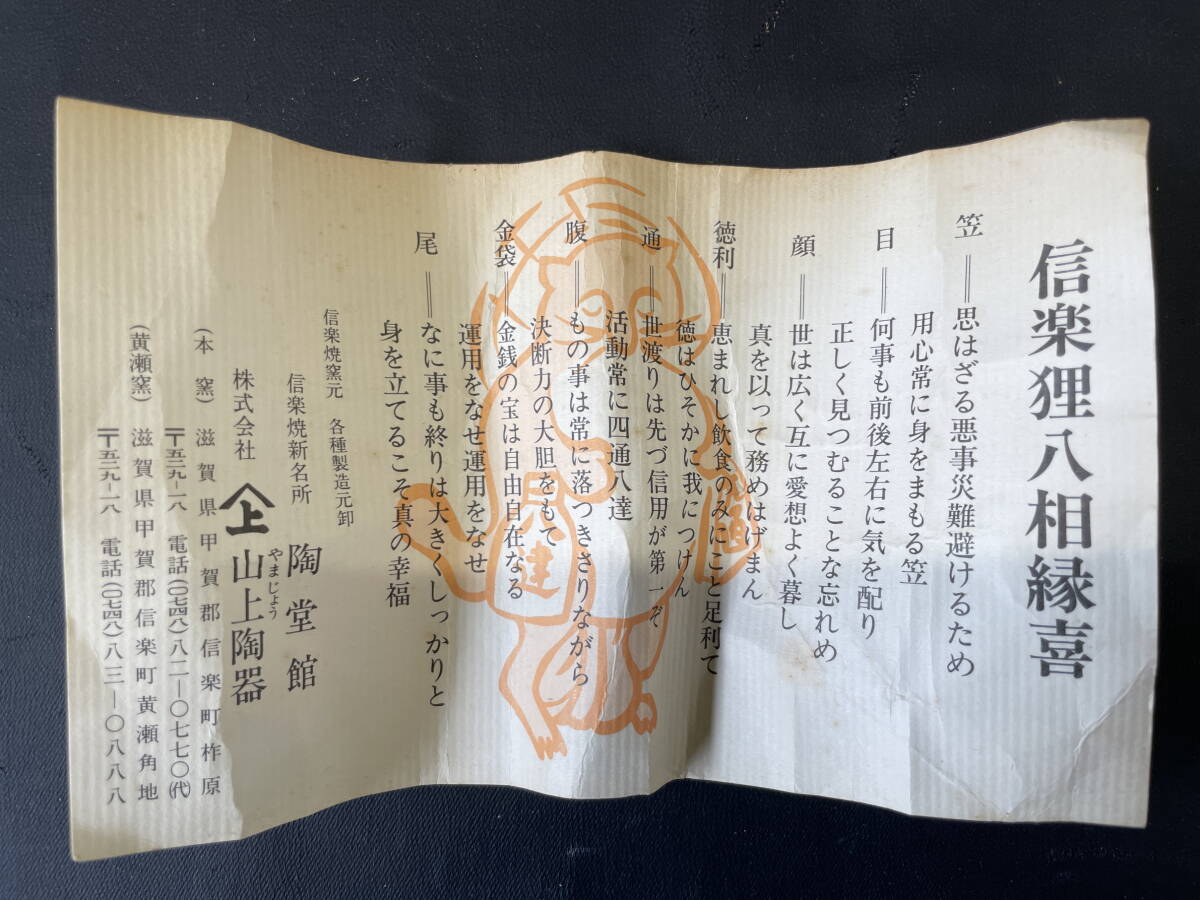 信楽狸八相縁喜
笠＝思はざる悪事災難避けるため
用心常に身をまもる笠
目＝何事も前後左右に気を配り
正しく見つむることな忘れめ
顔＝世は広く互に愛想よく暮し
真を以って務めはげまん
徳利＝恵まれし飲食のみにこと足利て
徳はひそかに我につけん
通＝世渡りは先づ信用が第一ぞ
活動常に四通八達
腹＝もの事は常に落つきさりながら
決断力の大胆をもて
金袋＝金銭の宝は自由自在なる
運用をなせ運用をなせ
尾＝なに事も終りは大きくしっかりと
身を立てるこそ真の幸福
信楽焼窯元 各種製造元卸
信楽焼新名所 陶堂館
株式会社 上 山上陶器
やまじょう
(本窯) 滋賀県甲賀郡信楽町柞原
〒五二九-一八 電話(〇七四八)八二-〇七七〇(代)
(黄瀬窯) 滋賀県甲賀郡信楽町黄瀬角地
〒五二九-一八 電話(〇七四八)八三-〇八八八
通
八達